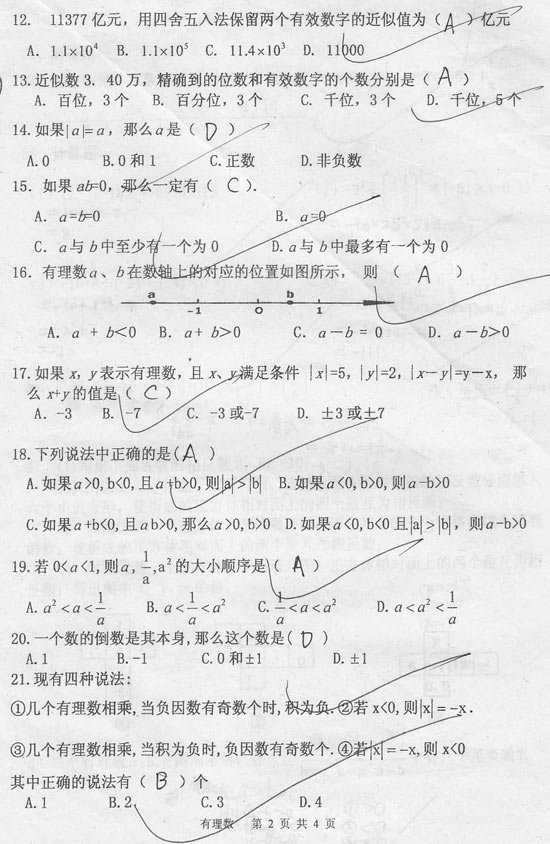 12. 11377亿元，用四舍五入法保留两个有效数字的近似值为（ A ）亿元
A. 1.1×10⁴ B. 1.1×10⁵ C. 11.4×10³ D. 11000
13.近似数3. 40万，精确到的位数和有效数字的个数分别是（ A ）
A. 百位，3个 B. 百分位，3个 C. 千位，3个 D. 千位，5个
14.如果|a|=a，那么a是（ D ）
A.0 B.0和1 C.正数 D.非负数
15. 如果ab=0，那么一定有（ C ）.
A. a=b=0 B. a=0
C. a与b中至少有一个为0 D.a与b中最多有一个为0
16. 有理数a、b在数轴上的对应的位置如图所示， 则（ A ）
a b
-1 0 1
A. a + b<0 B. a+ b>0 C. a－b = 0 D. a－b>0
17.如果x，y表示有理数，且x、y满足条件 |x|=5，|y|=2，|x－y|=y－x， 那
么x+y的值是（ C ）
A. -3 B. -7 C. -3或-7 D. ±3或±7
18.下列说法中正确的是(A )
A.如果a>0,b<0,且a+b>0,则|a|>|b| B.如果a<0,b>0,则a-b>0
C.如果a+b<0,且ab>0,那么a>0,b>0 D.如果a<0,b<0且|a|>|b|，则a-b>0
19.若0<a<1,则a,1/a,a²的大小顺序是( A )
A. a²<a<1/a B. a<1/a<a² C. 1/a<a<a² D. a<a²<1/a
20.一个数的倒数是其本身,那么这个数是( D )
A.1 B.-1 C.0和±1 D.±1
21.现有四种说法:
①几个有理数相乘,当负因数有奇数个时,积为负.②若x<0,则|x|=-x.
③几个有理数相乘,当积为负时,负因数有奇数个.④若|x|=-x,则x<0
其中正确的说法有( B )个
A.1 B.2 C.3 D.4
有理数 第 2 页 共 4 页